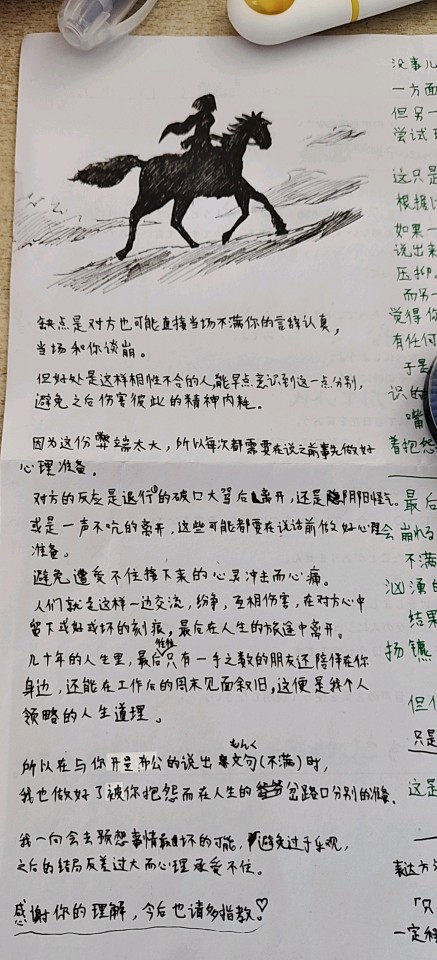 缺点是对方也可能直接当场不满你的言辞认真，
当场和你谈崩。
但好处是这样相性不合的人，能早点意识到这一点分别，
避免之后伤害彼此的精神内耗。
因为这份弊端太大，所以每次都需要在说之前事先做好
心理准备。
对方的反应是进行的破口大骂后离开，还是阴阳怪气。
或是一声不吭的离开，这些可能都要在说话前做好心理
准备。
避免遭受不住接下来的心灵冲击而心痛。
人们就是这样一边交流，纷争，互相伤害，在对方心中
留下或好或坏的刻痕，最后在人生的旅途中离开。
几十年的人生里，最后往往只有一手之数的朋友还陪伴在你
身边，还能在工作后的周末见面叙旧，这便是我个人
领略的人生道理。
所以在与你开诚布公的说出文句(不满)时，
もんく
我也做好了被你抱怨而在人生的岔路口分别的准备。
我一向会去预想事情最坏的可能，避免过于乐观，
之后的结局反差过大而心理承受不住。
感谢你的理解，今后也请多指教。♡
没事儿
一方面
但另一
尝试
这只是
根据
如果一
说出来
压抑
而另一
觉得你
有任何
于是
识的
嘴
着抱怨
最后
会崩れる
不满
汹涌的
结果
扬镳
但
只是
这是
表达方
「只
一定